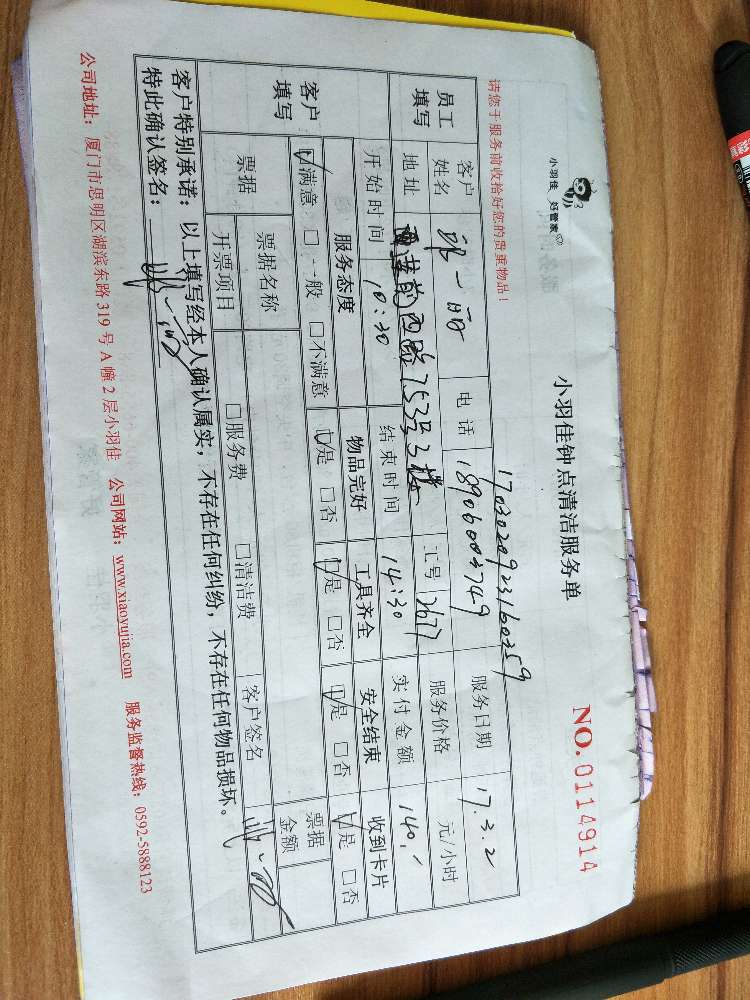 小羽佳 好管家
小羽佳钟点清洁服务单
NO.0114914
请您于服务前收拾好您的贵重物品!
17030209231160359
员工填写 客户姓名 一 电话 18906003749 服务日期 17.3.2
地址 西路753号3楼 工号 12677 服务价格 元/小时
开始时间 10:30 结束时间 14:30 实付金额 140.-
客户填写 服务态度 物品完好 工具齐全 安全结束 收到卡片
☑满意 □一般 □不满意 ☑是 □否 ☑是 □否 ☑是 □否 ☑是 □否
票据 票据名称 票据金额
开票项目 □服务费 □清洁费 客户签名
客户特别承诺:以上填写经本人确认属实,不存在任何纠纷,不存在任何物品损坏。
特此确认签名:
公司地址:厦门市思明区湖滨东路319号A幢2层小羽佳 公司网站:www.xiaoyujia.com 服务监督热线:0592-5888123